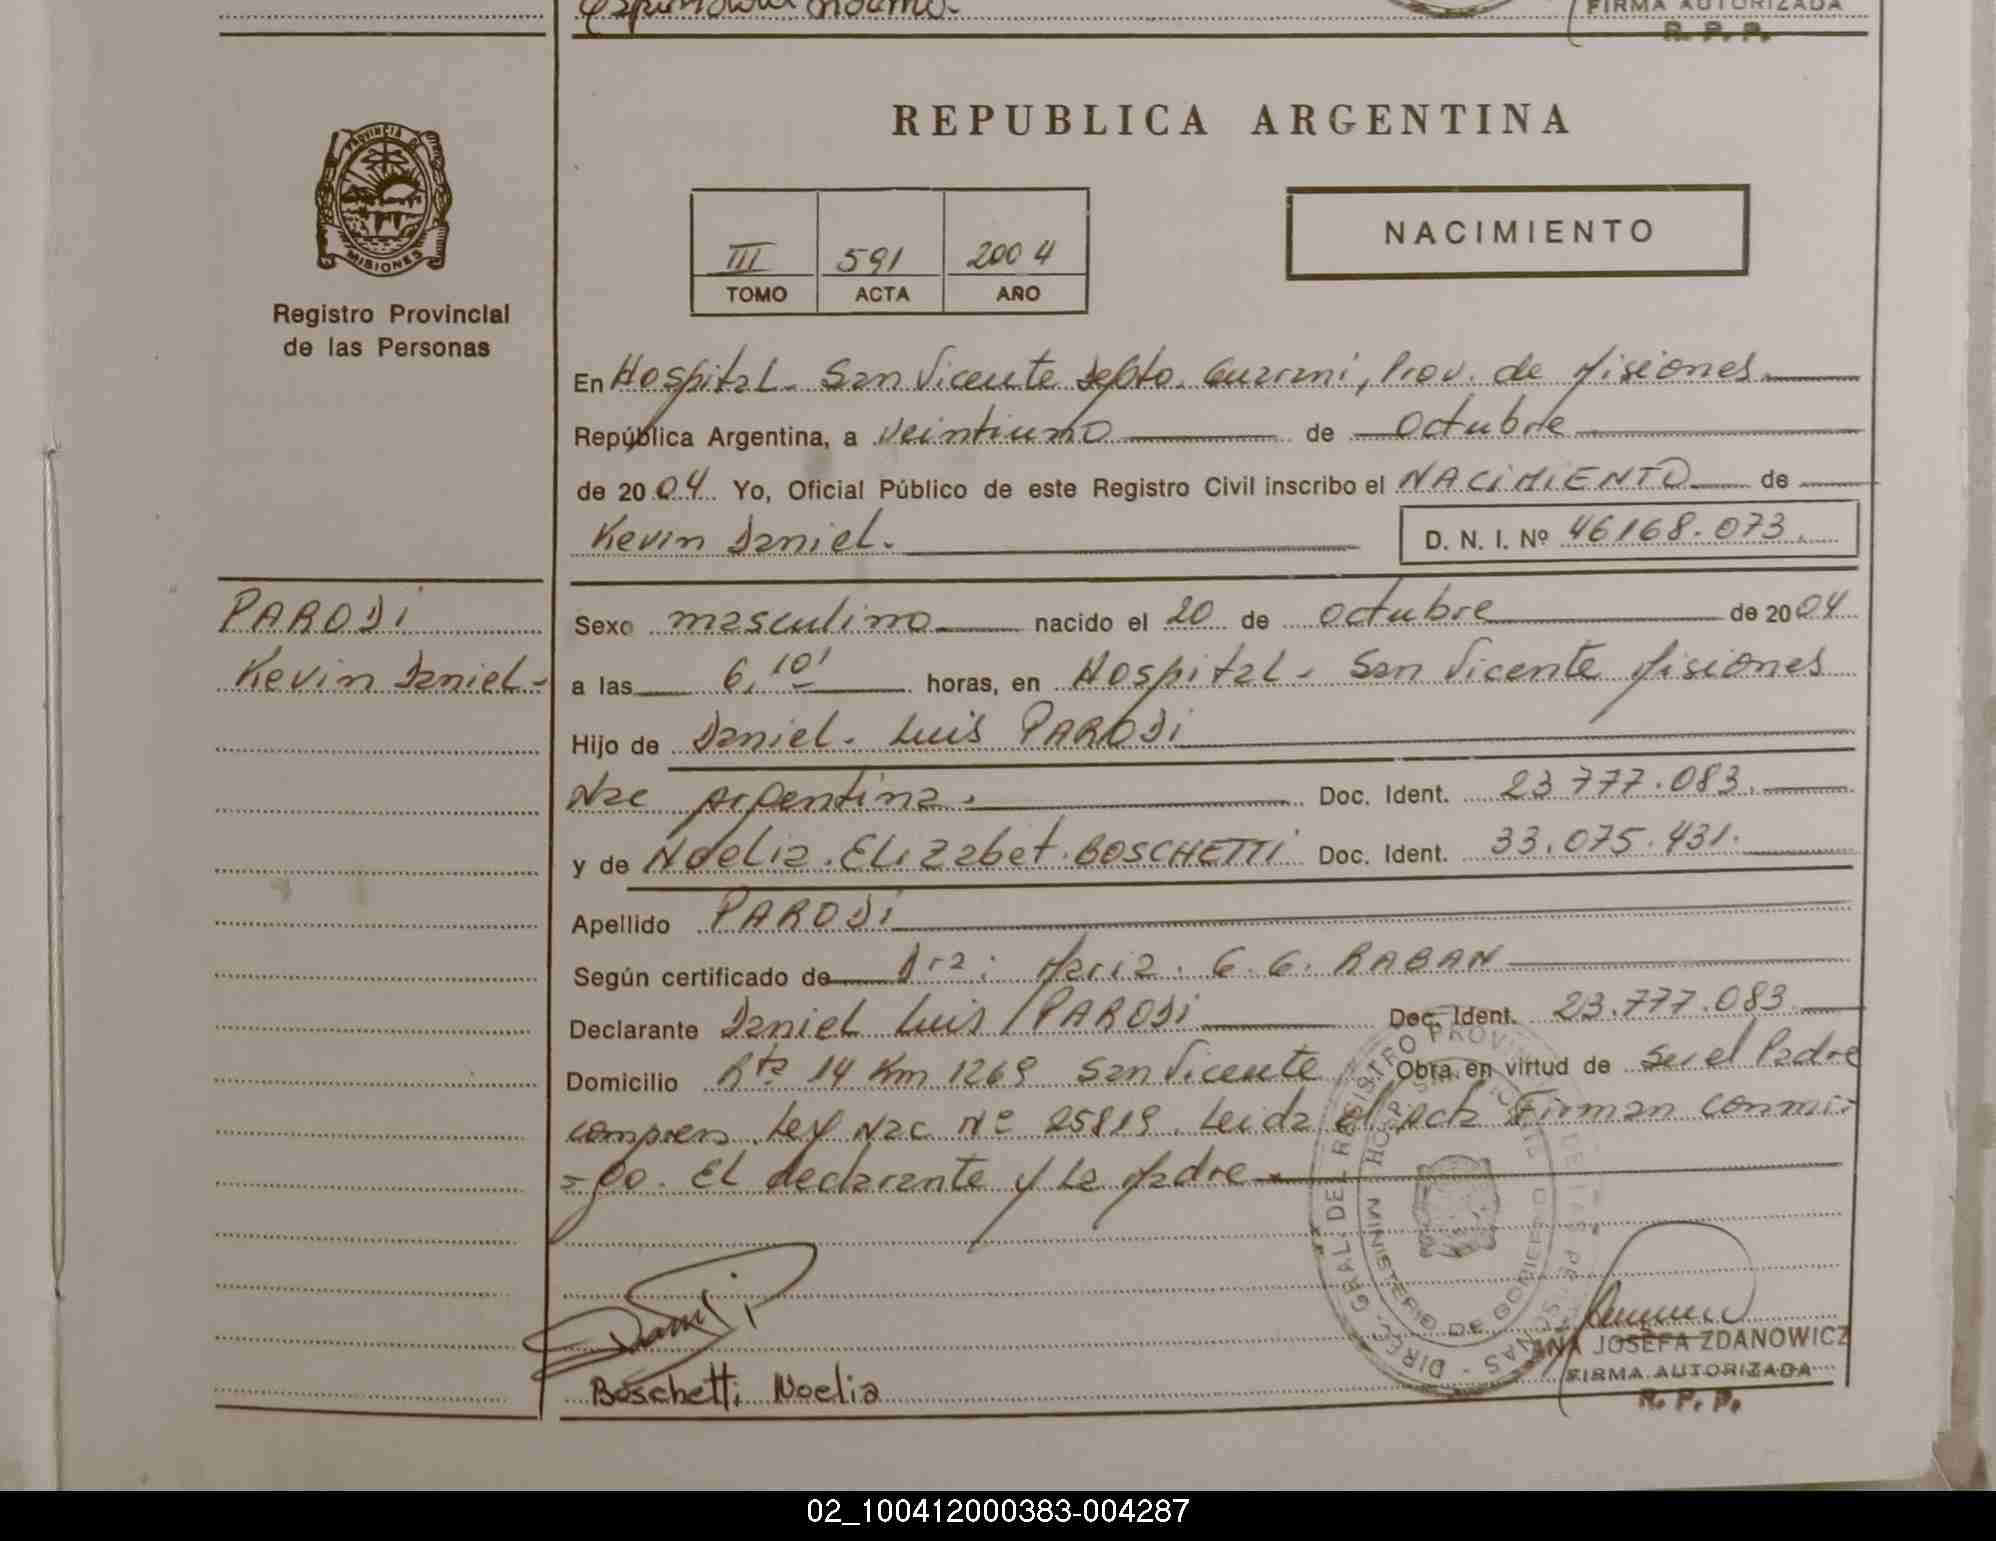 FIRMA AUTORIZADA
R. P. P.
REPUBLICA ARGENTINA
PROVINCIA DE
MISIONES
Registro Provincial
de las Personas
NACIMIENTO
III 591 2004
TOMO ACTA AÑO
En Hospital. San Vicente Depto. Guarani, Prov. de Misiones
República Argentina, a veintiuno de Octubre
de 2004 Yo, Oficial Público de este Registro Civil inscribo el NACIMIENTO de
Kevin Daniel. D. N. I. Nº 46168.073.
PARODI
Kevin Daniel-
Sexo masculino nacido el 20 de octubre de 2004
a las 6,10' horas, en Hospital - San Vicente Misiones
Hijo de Daniel. Luis PARODI
Nac Argentina. Doc. Ident. 23.777.083.
y de Noelia. Elizabet. BOSCHETTI Doc. Ident. 33.075.431.
Apellido PARODI
Según certificado de Dra: Maria. G. G. RABAN
Declarante Daniel Luis PARODI Doc. Ident. 23.777.083.
Domicilio Rta 14 Km 1269 San Vicente Obra en virtud de ser el Padre
Ley Nac Nº 25819. Leida el Acta Firman conmi-
-go. El declarante y la Madre
DIREC. GRAL. DEL REGISTRO PROVINCIAL DE LAS PERSONAS
MINISTERIO DE GOBIERNO
Boschetti Noelia
ANA JOSEFA ZDANOWICZ
FIRMA AUTORIZADA
R. P. P.
02_100412000383-004287